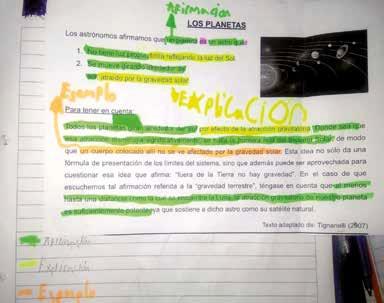 Afirmacion
LOS PLANETAS
Los astrónomos afirmamos que un planeta es un astro que:
1. No tiene luz propia, brilla reflejando la luz del Sol.
2. Se mueve girando alrededor del
atraído por la gravedad solar.
Ejemplo
EXPLICACIÓN
Para tener en cuenta:
Todos los planetas giran alrededor del sol por efecto de la atracción gravitatoria. Donde sea que
esa atracción disminuya significativamente, se halla la frontera real del Sistema Solar, de modo
que un cuerpo colocado allí no se ve afectado por la gravedad solar. Esta idea no sólo da una
fórmula de presentación de los límites del sistema, sino que además puede ser aprovechada para
cuestionar esa idea que afirma: "fuera de la Tierra no hay gravedad". En el caso de que
escuchemos tal afirmación referida a la "gravedad terrestre", téngase en cuenta que al menos
hasta una distancia como la que se encuentra la Luna, la atracción gravitatoria de nuestro planeta
es suficientemente potente ya que sostiene a dicho astro como su satélite natural.
Texto adaptado de: Tignanelli (2007)
Afirmación
Explicación
Ejemplo